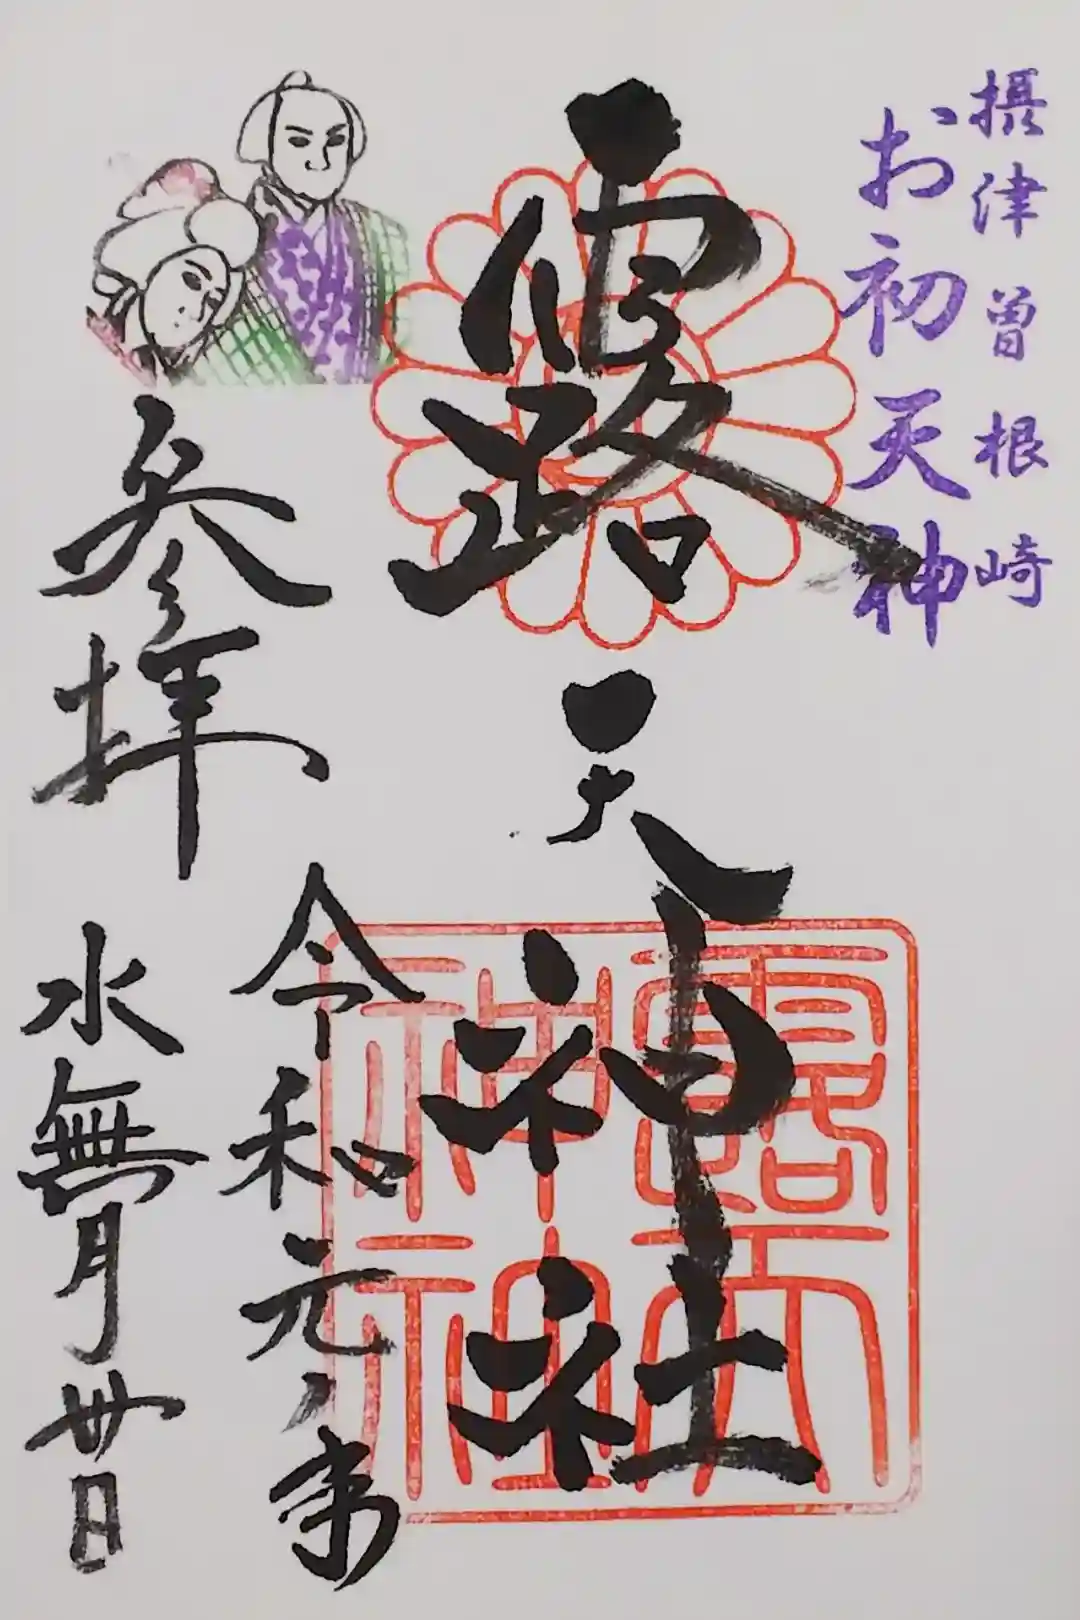 摂津曽根崎
お初天神
露天神社
参拝
令和元年
水無月丗日
露天
神社